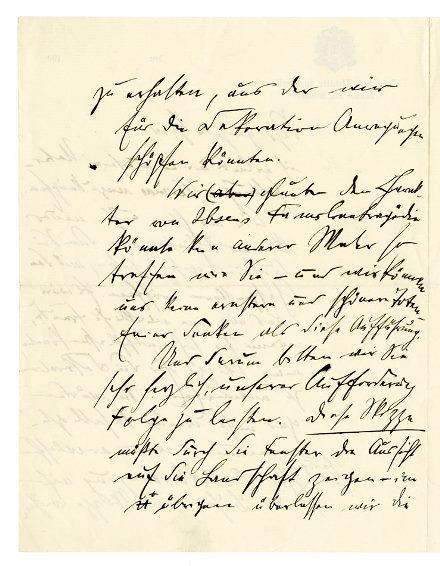 zu erhalten, aus der wir
für die Dekoration Anregungen
schöpfen könnten.
Wir (aber) glauben den Charak-
ter von Ibsens Familientragödie
könnte kein anderer Maler so
treffen wie Sie – und wir könnten
uns keine ernstere und schönere Toten
feier denken als diese Aufführung.
Und darum bitten wir Sie
sehr herzlich, unserer Aufforderung
Folge zu leisten. Diese Skizze
müßte durch die Fenster die Aussicht
auf die Landschaft zeigen – im
übrigen überlassen wir die